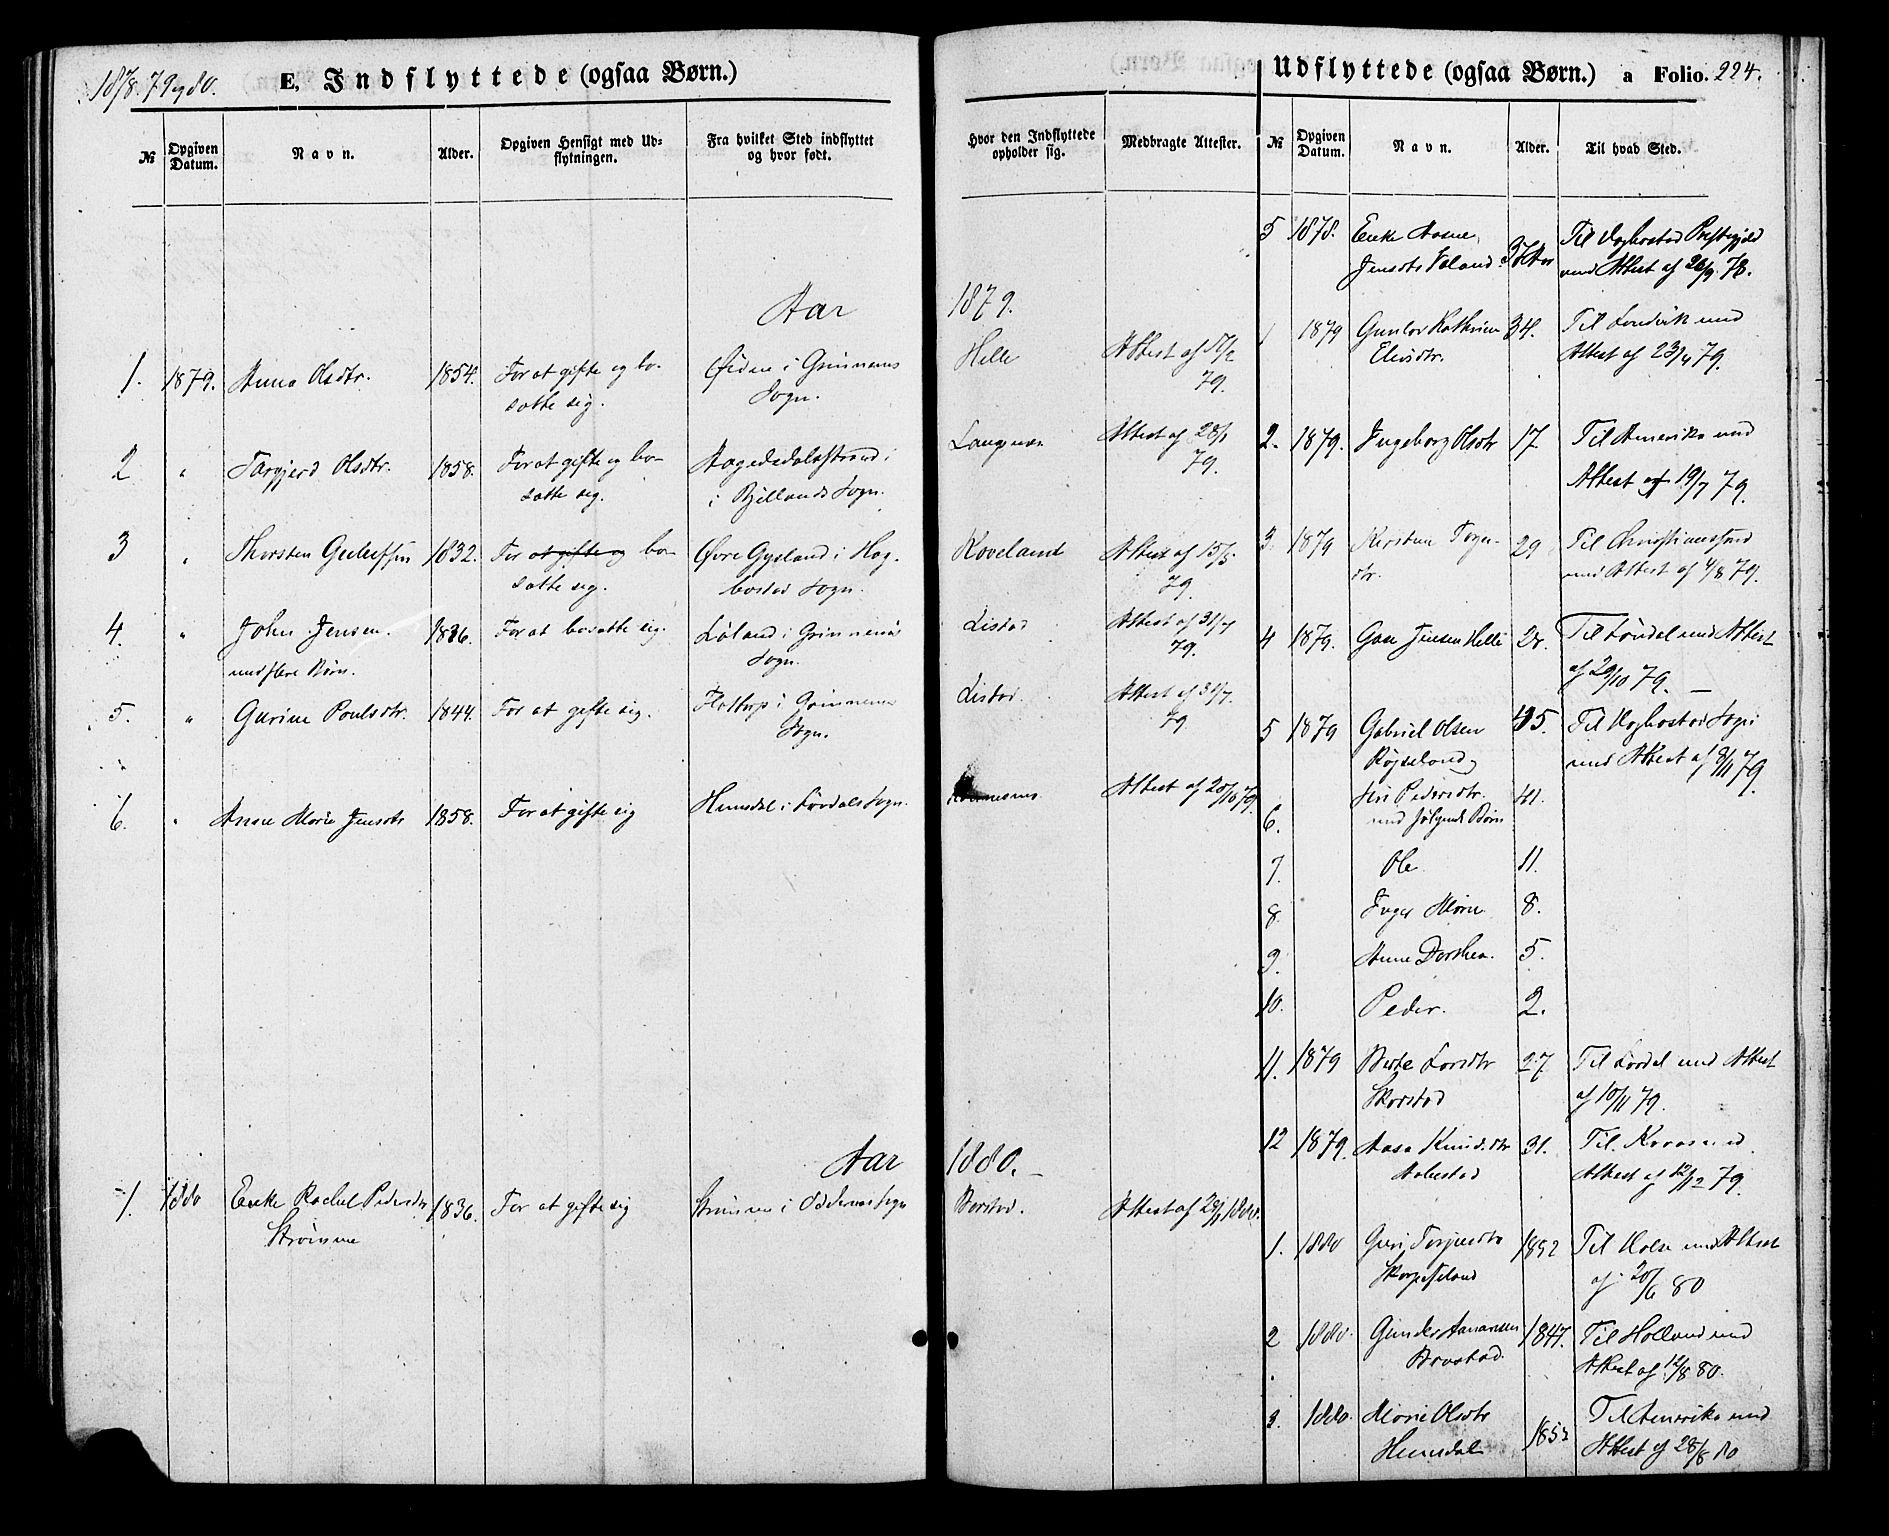 1878. 79 og 80.
E. Indflyttede (ogsaa Børn.)
№ Opgiven Datum. Navn. Alder. Opgiven Hensigt med Udflytningen. Fra hvilket Sted indflyttet og hvor født.
Hvor den Indflyttede opholder sig. Medbragte Attester.
Aar 1879.
1. 1879. Anna Olsdtr. 1854. For at gifte og bo- i Grimnenes Helle Attest af 17/2
satte sig. Sogn. 79.
2 " Targjerd Olsdtr. 1858. For at gifte og bo- Langnæs Attest af 28/1
satte sig. i Bjellands Sogn. 79.
3 " Thorsten 1832. For at gifte og bo- Øvre Gysland i Hæg- Roveland Attest af 15/5
satte sig. bostad Sogn. 79.
4. " John Jensen. 1836. For at bosatte sig. i Grimnenes Listad Attest af 31/7
med flere Børn. Sogn. 79.
5. " Gurine Poulsdtr. 1844. For at gifte sig. i Grimnenes Listad. Attest af 31/7
Sogn. 79
6. " Anne Marie Jensdtr 1858. For at gifte sig Humsdal i Løvdals Sogn. Attest af 20/10 79.
Aar 1880.
1. 1880 Enke Rachel Pedersdtr 1836. For at gifte sig Strømme i Oddernes Sogn Attest af 1880.
Strømme
Udflyttede (ogsaa Børn.) a Folio. 224.
№ Opgiven Datum. Navn. Alder. Til hvad Sted.
5 1878. Enke Aasne Til Præstegjeld
Jensdtr Valand. 37 Aar med Attest af 26/9 78.
1 1879 Gunlov Kathrine 34. Til med
Attest af 23/4 79.
2. 1879. Ingeborg Olsdtr 17. Til Amerika med
Attest af 19/7 79.
3 1879 Kirsten 29 Til Christianssand
dtr. med Attest af 4/8 79.
4 1879. Jensen Helle Til Løvdal med Attest
af 29/10 79.
5 1879 Gabriel Olsen 45. Til Hægbostad Sogn
Røjseland med Attest af 8/11 79.
6. Siri Pedersdtr. 41.
med følgende Børn
7. Ole 11.
8. Inger Marie 8.
9. Anne Dorthea. 5.
10. Peder. 2.
11. 1879 Berte Larsdtr 27 Til Løvdal med Attest
Skarstad af 10/11 79.
12 1879. Aasa Knudsdtr 31. Til
Aabestad Attest af 12/12 79.
1. 1880 Guri 1852 Til Holse med Attest
af 20/6 80
2 1880. Gunder Aanonsen 1847. Til Holland med
Attest af 12/8 80.
3. 1880. Marie Olsdtr 1852 Til Amerika med
Humsdal Attest af 28/8 80